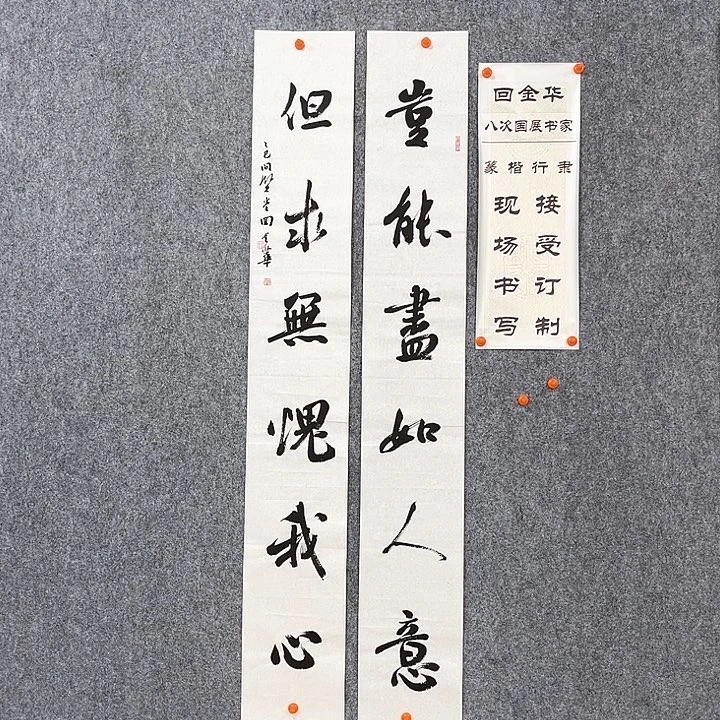 豈能盡如人意
但求無愧我心
乙巳问堂回金華
回金华
八次国展书家
篆楷行隶
现场书写
接受订制